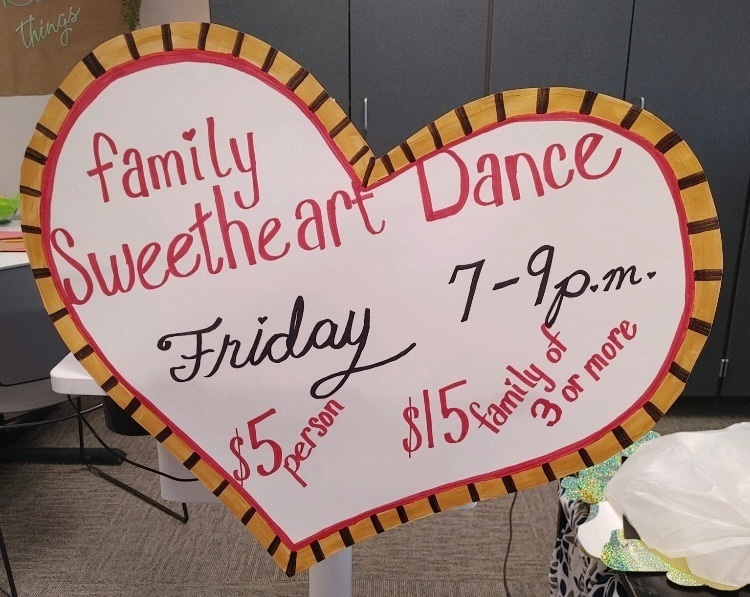 things
family
Sweetheart Dance
Friday 7-9p.m.
$5 person $15 family of
3 or more